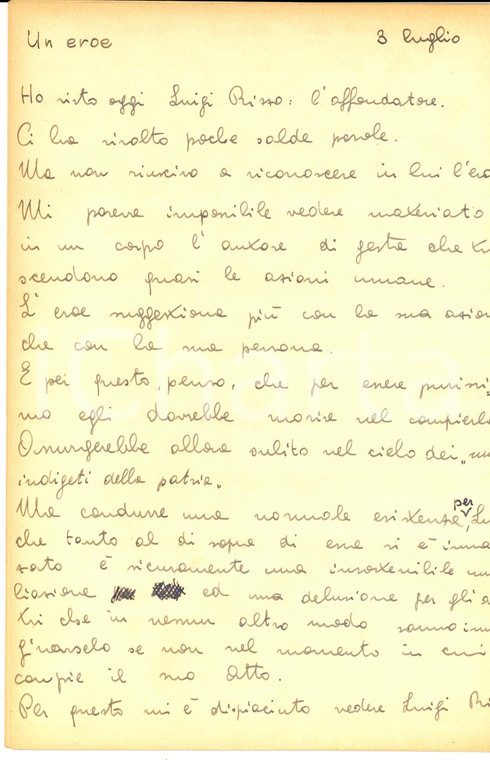 Un eroe 3 luglio
Ho visto oggi Luigi Rizzo: l'affondatore.
Ci ha rivolto poche salde parole.
Ma non riuscivo a riconoscere in lui l'ero
Mi pareva impossibile vedere materiato
in un corpo l'autore di gesta che tra
scendono quasi le azioni umane.
L'eroe suggestiona più con la sua azion
che con la sua persona.
E per questo, penso, che per essere purissi-
mo egli dovrebbe morire nel compierlo
Assurgerebbe allora subito nel cielo dei "nu
indigeti della patria".
Ma condurre una normale esistenza, per Lu
che tanto al di sopra di essa si è innal
zato è sicuramente una insostenibile umi
liazione ed una delusione per gli al
tri che in nessun altro modo sanno imma
g'narselo se non nel momento in cui
compie il suo Atto.
Per questo mi è dispiaciuto vedere Luigi Riz